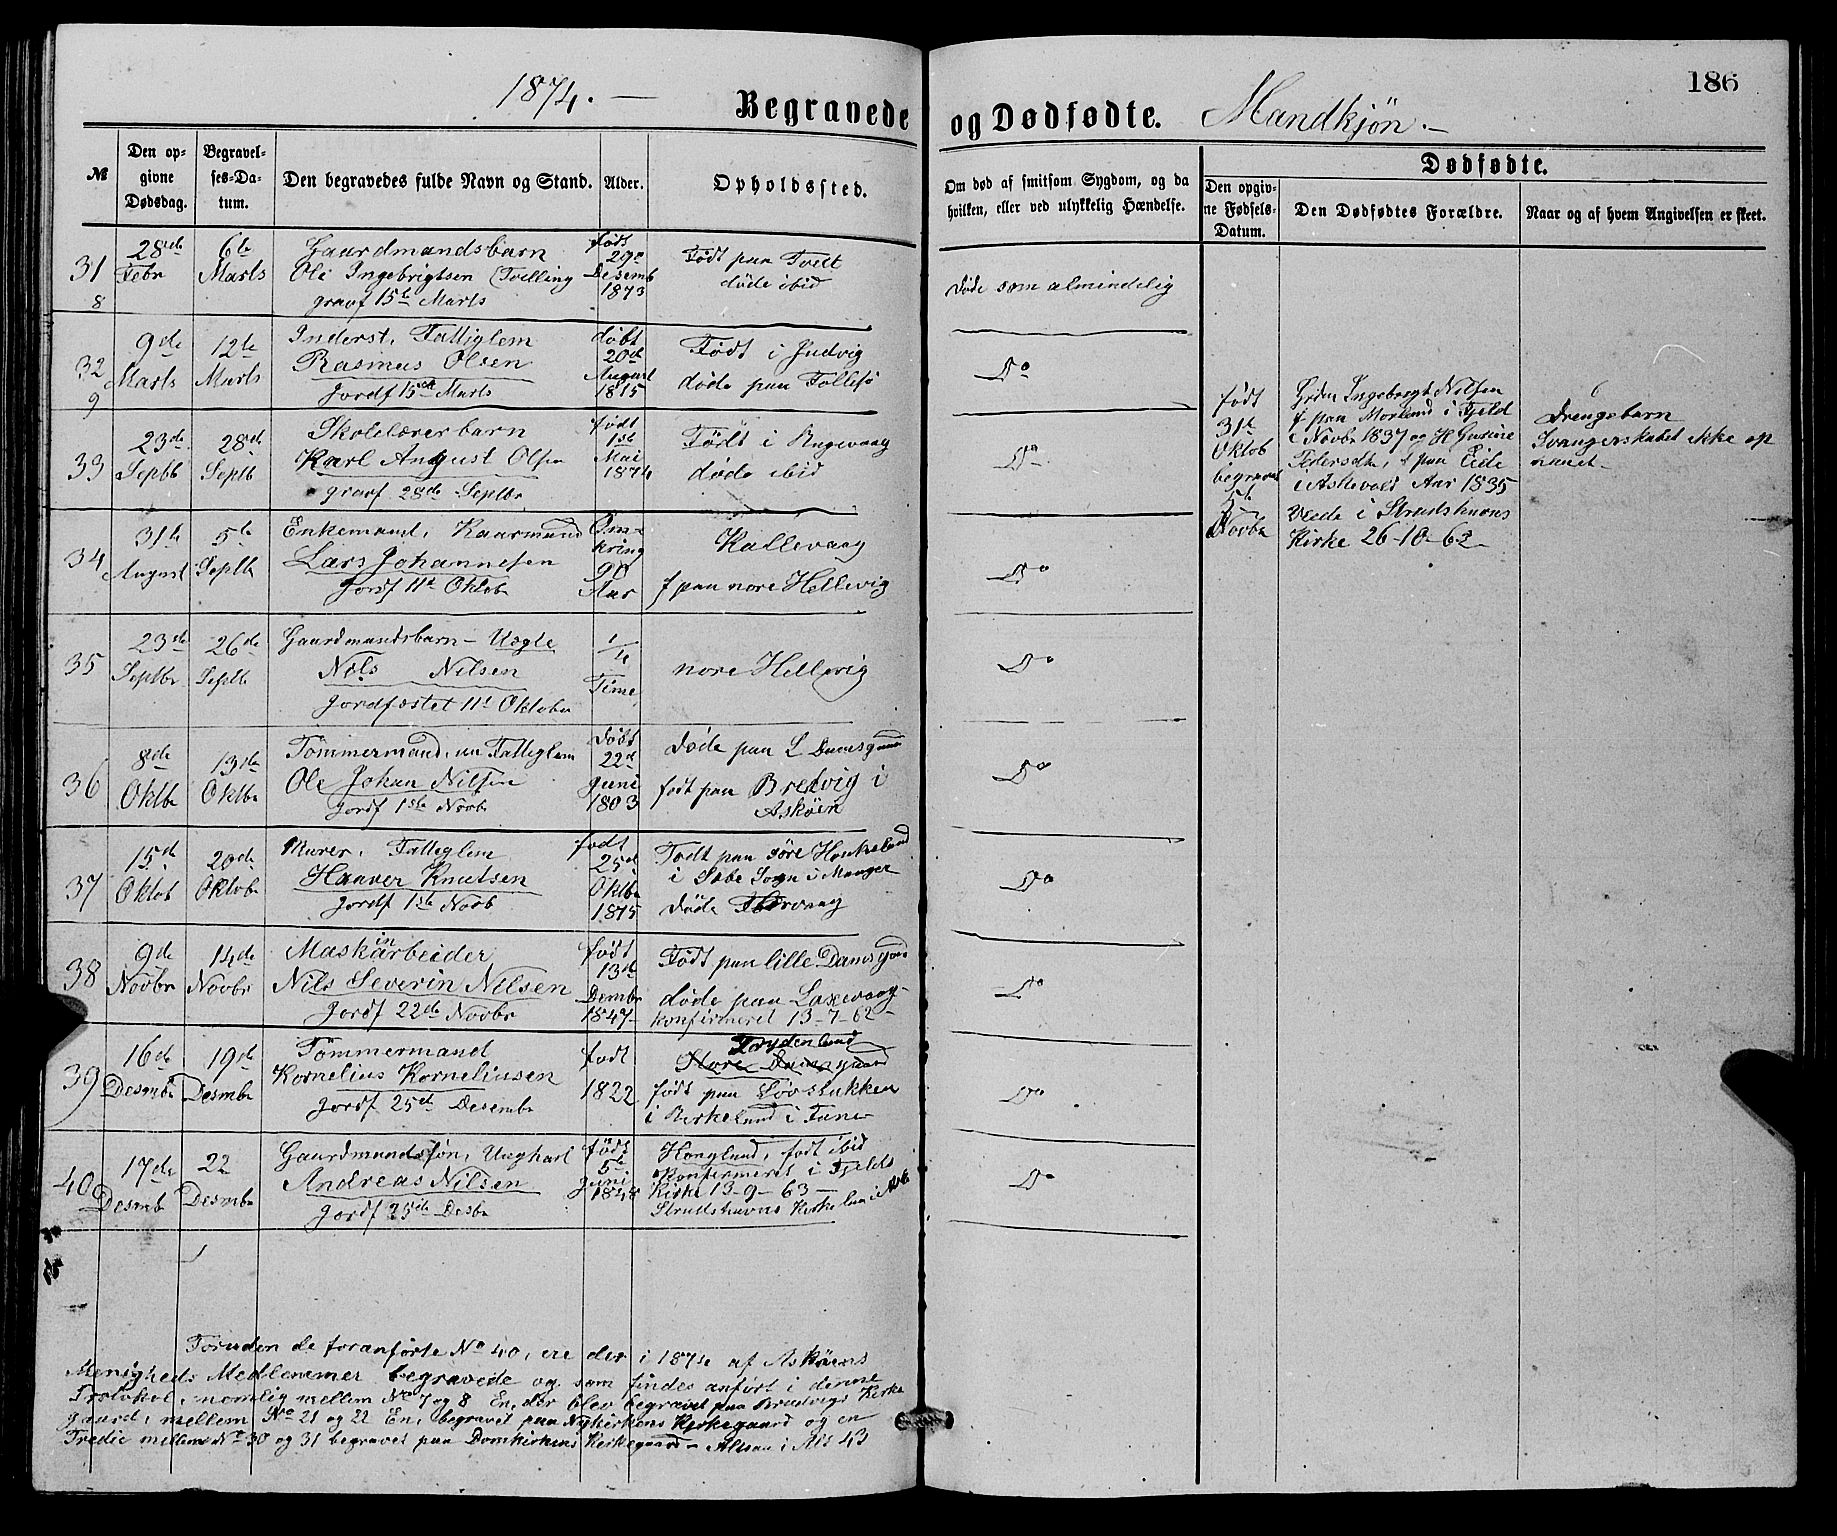 1874. —
Begravede og Dødfødte. Mandkjøn. —
186
№
Den opgivne Dødsdag.
Begravelses-Datum.
Den begravedes fulde Navn og Stand.
Alder.
Opholdssted.
Om død af smitsom Sygdom, og da hvilken, eller ved ulykkelig Hændelse.
Dødfødte.
Den opgivne Fødsels-Datum.
Den Dødfødtes Forældre.
Naar og af hvem Angivelsen er skeet.
31
8
28de Febr
6te Marts
Gaardmandsbarn
Ole Ingebrigtsen (Tvilling
gravf 15de Marts
født
29de
Desemb
1873
Født paa Tvedt
døde ibid
Døde som almindelig
32
9
9de Marts
12te Marts
Inderst, Fattiglem
Rasmus Olsen
Jordf 15de Marts
døbt
20de
August
1815
Født i Judvig
døde paa Follesø
Do
33
23de Septb
28de Septb
Skolelærerbarn
Karl August Olsen
gravf 28de Septbr
født
1ste
Mai
1874
Født i Ringevaag
døde ibid
Do
34
31te August
5te Septb
Enkemand, Kaarmand
Lars Johannesen
Jordf 11te Oktob
Om-
kring
90
Aar
Kallevaag
f paa nore Hellevig
Do
35
23de Septbr
26de Septb
Gaardmandsbarn – Uægte
Nils Nilsen
Jordfæstet 11te Oktober
1/4
Time
nore Hellevig
Do
36
8de Oktbr
13de Oktbr
Tømmermand, nu Fattiglem
Ole Johan Nilsen
Jordf 1ste Novbr
Døbt
22de
Juni
1803
Døde paa L Damsgaard
født paa Bredvig i
Askøen
Do
37
15de Oktob
20de Oktobr
Murer, Fattiglem
Haaver Knutsen
Jordf 1ste Novb
født
25de
Oktbr
1815
Født paa søre Haukeland
i Sæbe Sogn i Manger
Døde
Do
38
9de Novbr
14de Novbr
Maskinarbeider
Nils Severin Nilsen
Jordf 22de Novbr
født
13de
Dembr
1847
Født paa lille Damsgaard
døde paa Laxevaag
Konfirmeret 13-7-62
Do
39
16de Desmbr
19de Desmbr
Tømmermand
Kornelius Korneliusen
Jordf 25de Desembr
født
1822
Frydenlund
Store Damsgaard
født paa Løvstakken
i Birkelund i Fane
Do
40
17de Desmb
22 Desmbr
Gaardmandssøn, Ungkarl
Andreas Nilsen
Jordf 25de Desbr
født
5te
Juni
1848
Hauglund, født ibid
Konfirmeret i Fjelds
Kirke 13-9-63 –
Strudshavns Kirke
Do
født
31te
Oktob
begravet
5te
Novbr
Ingebregt Nilsen
f paa Morland i Fjeld
i Novbr 1837 og H Gurine
Pedersdtr, f paa Eide
i Askevold Aar 1835
Viede i Strudshavns
Kirke 26-10-62
Drengebarn
Svangerskabet ikke op
naaet
Foruden de foranførte No 40, ere der i 1874 af Askøens
Menigheds Medlemmer begravede og som findes anført i denne
Protokol, nemlig mellem No 7 og 8 En, der blev begravet paa Bredvigs Kirke
gaard, mellem No 21 og 22 En, begravet paa Nykirkens Kirkegaard og en
Tredie mellem No 30 og 31 begravet paa Domkirkens Kirkegaard – Altsaa i Alt 43